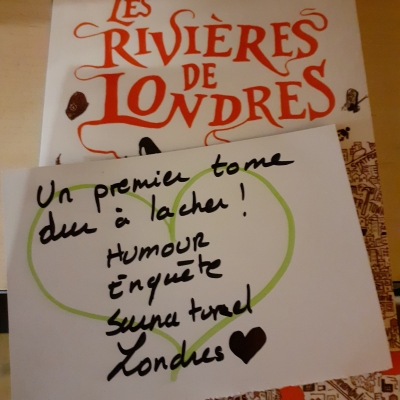 LES
RIVIÈRES
DE
LONDRES
Un premier tome
dur à lacher !
HUMOUR
Enquête
Surnaturel
Londres